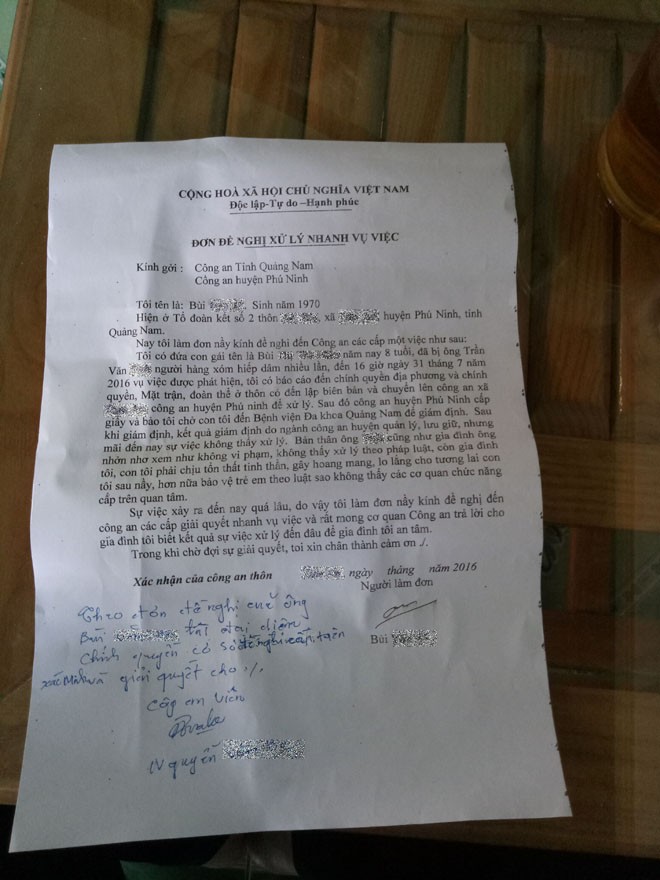 CỘNG HOÀ XÃ HỘI CHỦ NGHĨA VIỆT NAM
Độc lập-Tự do –Hạnh phúc
ĐƠN ĐỀ NGHỊ XỬ LÝ NHANH VỤ VIỆC
Kính gởi : Công an Tỉnh Quảng Nam
Công an huyện Phú Ninh
Tôi tên là: Bùi Sinh năm 1970
Hiện ở Tổ đoàn kết số 2 thôn xã huyện Phú Ninh, tỉnh
Quảng Nam.
Nay tôi làm đơn nầy kính đề nghi đến Công an các cấp một việc như sau:
Tôi có đứa con gái tên là Bùi năm nay 8 tuổi, đã bị ông Trần
Văn người hàng xóm hiếp dâm nhiều lần, đến 16 giờ ngày 31 tháng 7 năm
2016 vụ việc được phát hiện, tôi có báo cáo đến chính quyền địa phương và chính
quyền, Mặt trận, đoàn thể ở thôn có đến lập biên bản và chuyển lên công an xã
công an huyện Phú ninh để xử lý. Sau đó công an huyện Phú Ninh cấp
giấy và bảo tôi chở con tôi đến Bệnh viện Đa khoa Quảng Nam để giám định. Sau
khi giám định, kết quả giám do ngành công an huyện quản lý, lưu giữ, nhưng
mãi đến nay sự việc không thấy xử lý. Bản thân ông cũng như gia đình ông
nhởn nhơ xem như không vi phạm, không thấy xử lý theo pháp luật, còn gia đình
tôi, con tôi phải chịu tổn thất tinh thần, gây hoang mang, lo lắng cho tương lai con
tôi sau nầy, hơn nữa bảo vệ trẻ em theo luật sao không thấy các cơ quan chức năng
cấp trên quan tâm.
Sự việc xảy ra đến nay quá lâu, do vậy tôi làm đơn nầy kính đề nghị đến
công an các cấp giải quyết nhanh vụ việc và rất mong cơ quan Công an trả lời cho
gia đình tôi biết kết quả sự việc xử lý đến đâu để gia đình tôi an tâm.
Trong khi chờ đợi sự giải quyết, toi xin chân thành cảm ơn ./.
Xác nhận của công an thôn ngày tháng năm 2016
Người làm đơn
Theo đơn đề nghị của ông
Bùi
Chính quyền có sở đề nghị cấp trên
xác Minh và giải quyết cho ./.
Công an viên
Bùi
quyền